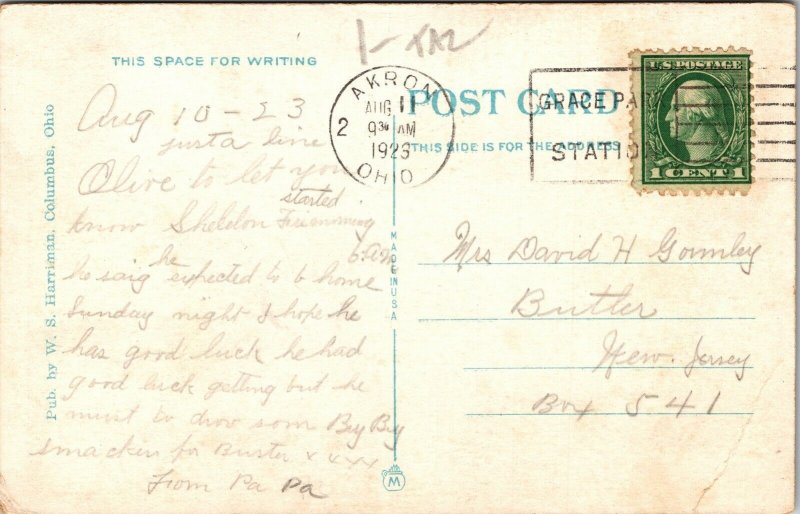 1- TA2
THIS SPACE FOR WRITING
POST CARD
THIS SIDE IS FOR THE ADDRESS
AKRON
AUG 11
930 AM
1923
OHIO
2
GRACE PARK
STATIO
U.S. POSTAGE
1 CENT 1
Aug 10 - 23
just a line
Olive to let you
started
know Sheldon
6 a.m
he
he saig expected to b home
Sunday night I hope he
has good luck he had
good luck getting but he
must to drov som By By
smackers for Buster x x x x
From Pa Pa
MADE IN USA
M
Pub. by W. S. Harriman, Columbus, Ohio
Mrs David H Gormley
Butler
New. Jersey
Box 541